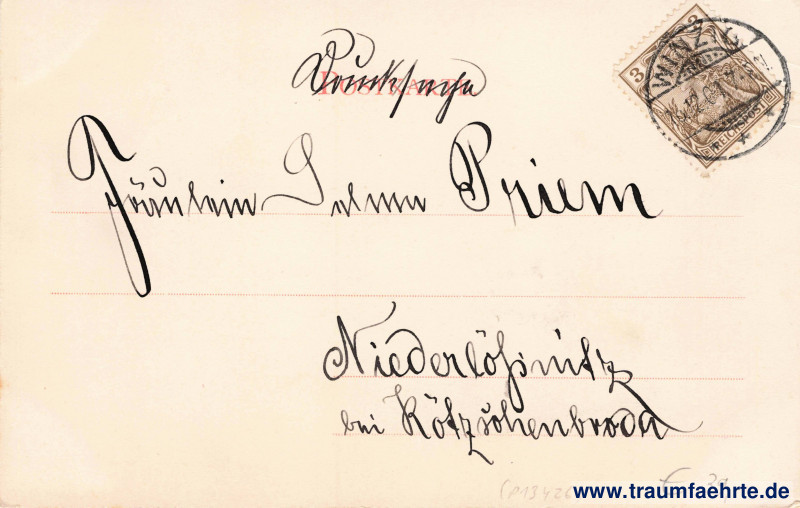 Drucksache
POSTKARTE
3 3
WINZIG
REICHSPOST
Fräulein Selma Priem
Niederlößnitz
bei Kötzschenbroda
www.traumfaehrte.de